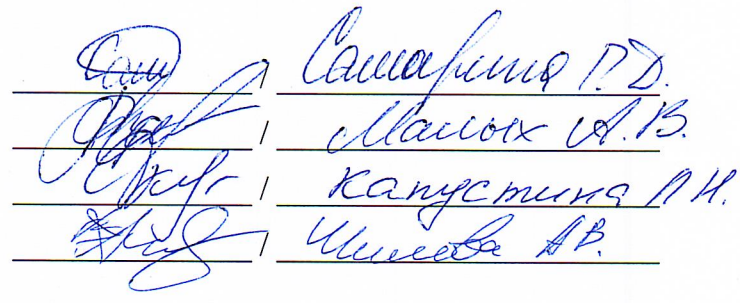 / Самарина Г.Д.
/ Малых А.В.
/ Капустина Л.Н.
/ Шилова А.В.